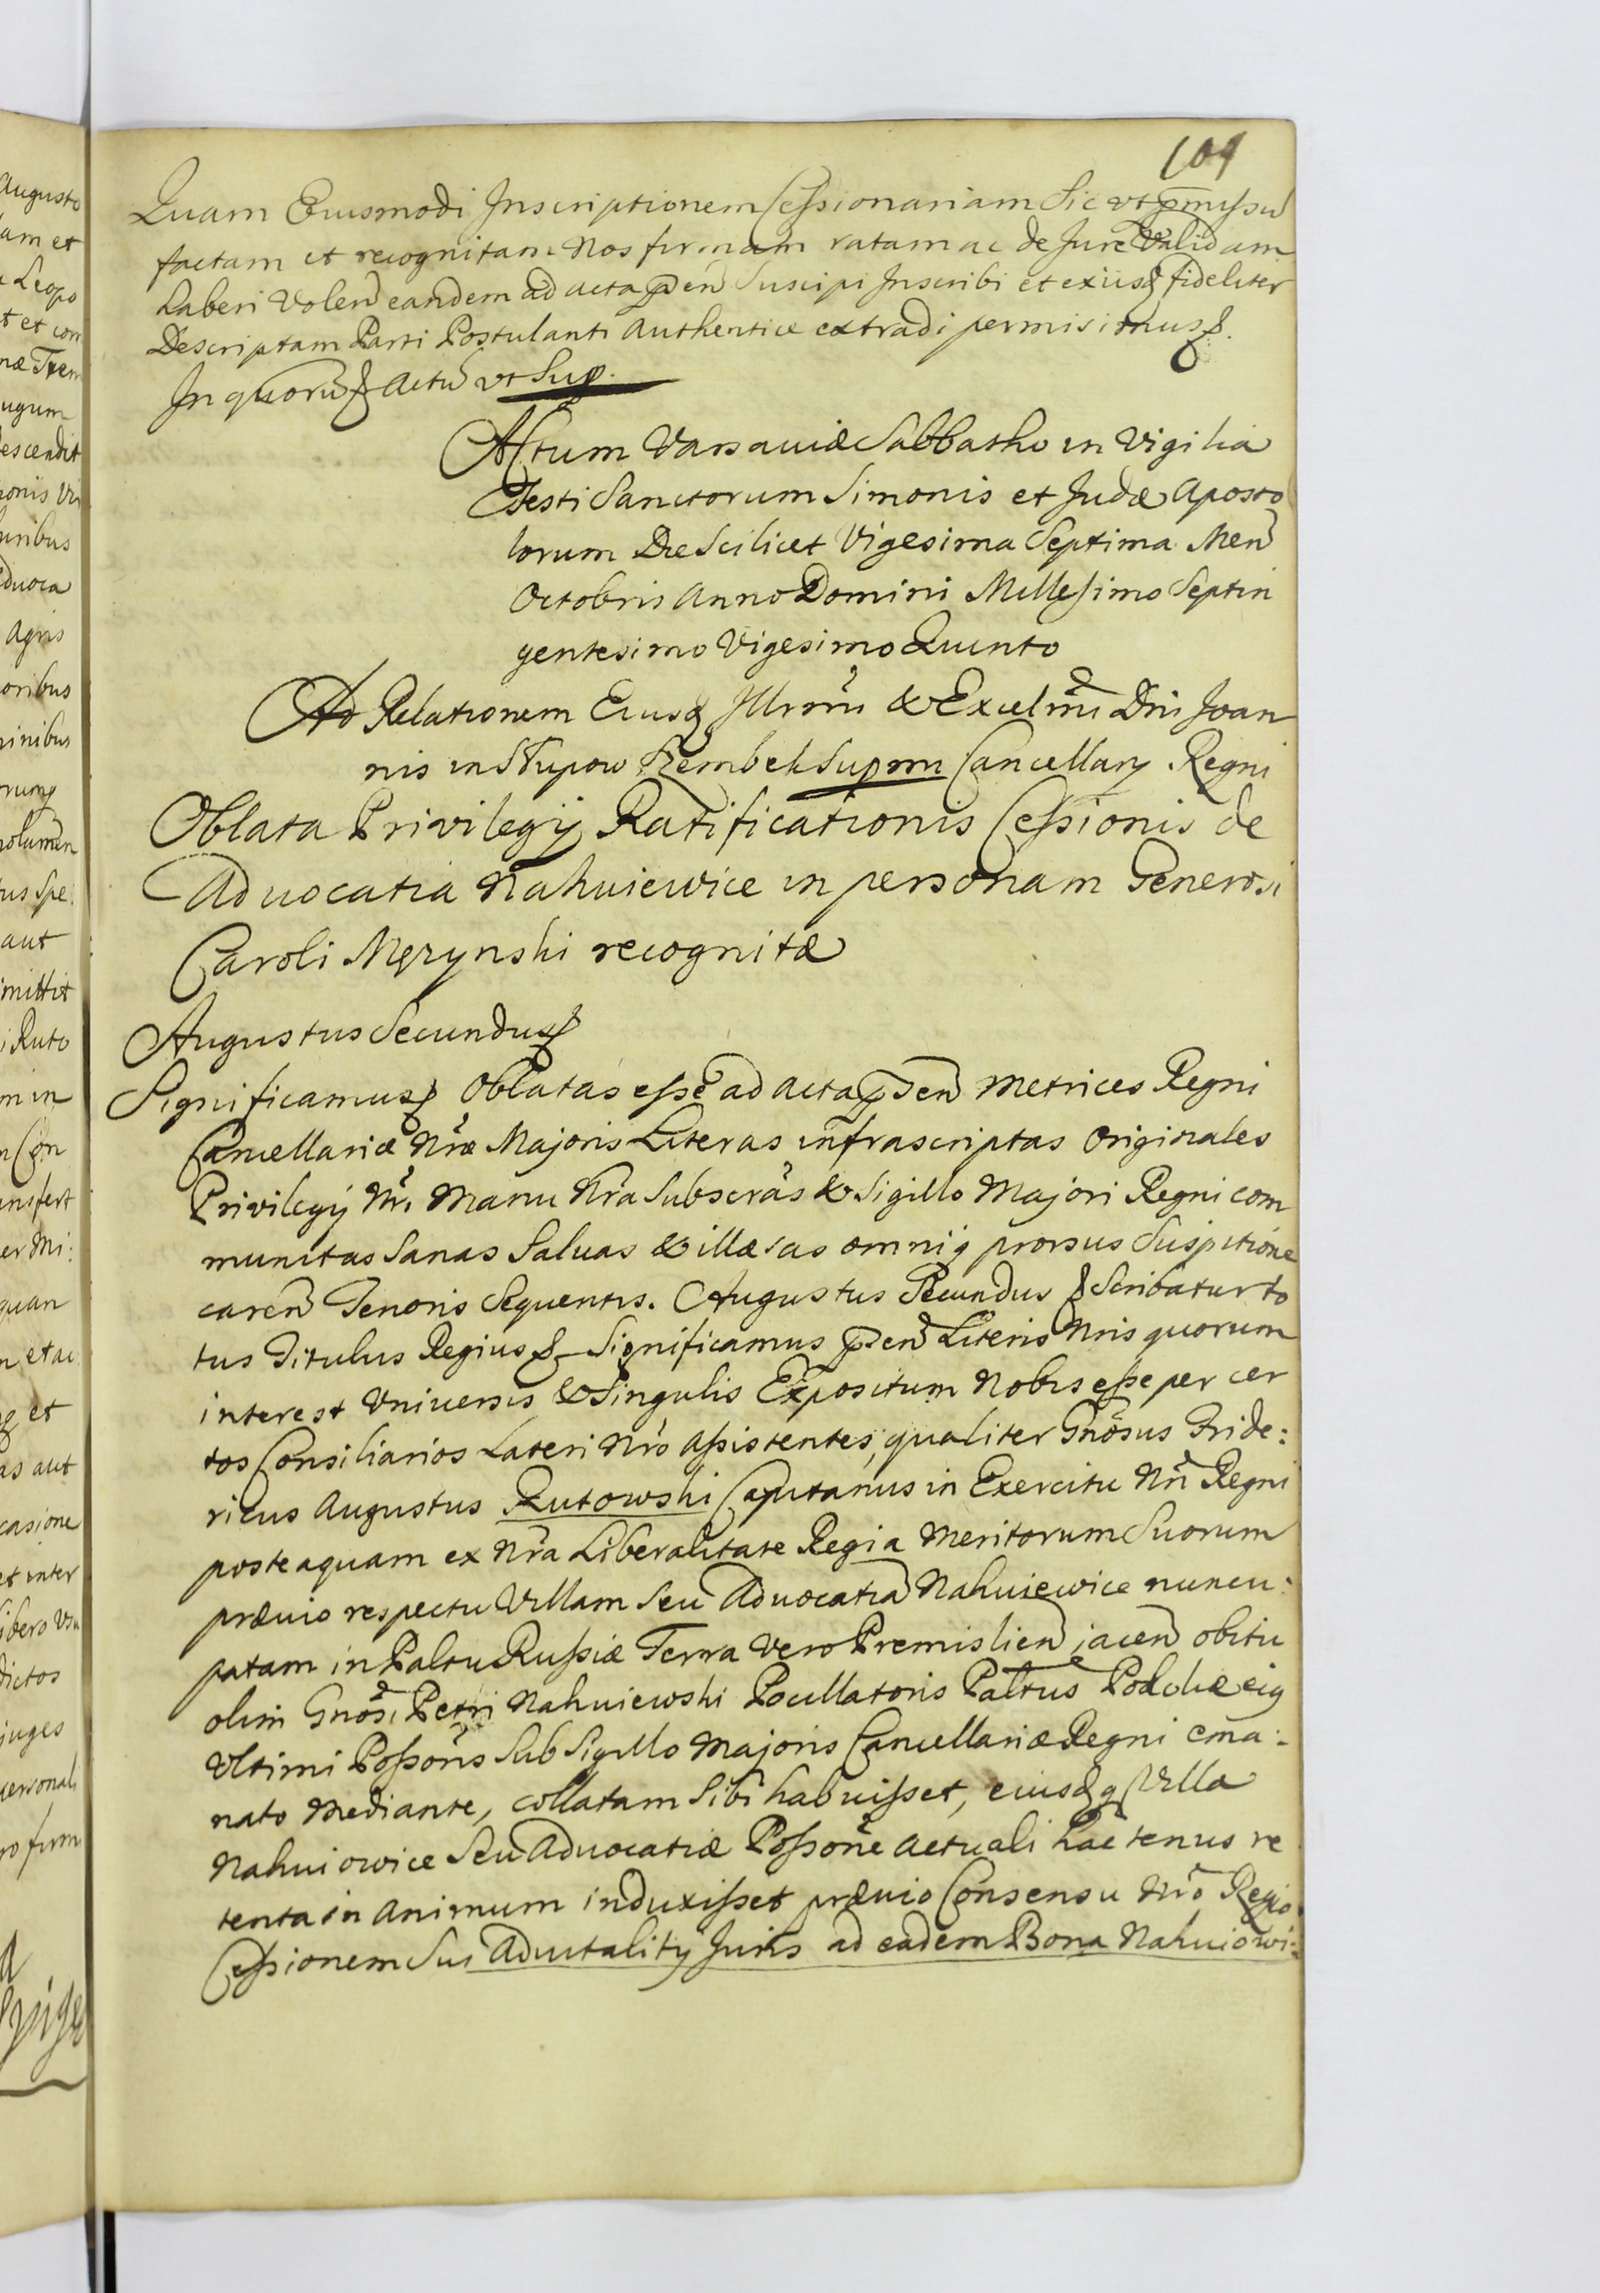 109
Quam Eiusmodi Inscriptionem Cessionariam Sic vt p̄missu
factam et recognitam Nos firmam ratam ac de Jure Validam
haberi Volen eandem ad acta p̄sen Suscipi Inscribi et exiisđ fideliter
Descriptam Parti Postulanti Authentice extradi permisimus
In quorū Actū vt Sup.
Actum Varsaviæ Sabbatho in Vigilia
Festi Sanctorum Simonis et Judæ Aposto
lorum Die Scilicet Vigesima Septima Men
Octobris Anno Domini Millesimo Septin
gentesimo Vigesimo Quinto
Ad Relationem Eiusđ Illrmi & Excelmi Dni Joan
nis in Słupow Szembek Suprm Cancellarÿ Regni
Oblata Privilegÿ Ratificationis Cessionis de
Advocatia Nahuiewice in personam Generosi
Caroli Męzynski recognitæ
Augustus Secundus
Significamus Oblatas esse ad acta p̄sen Metrices Regni
Cancellariæ Nræ Majoris Literas infrascriptas Originales
Privilegÿ Nri Manu Nra Subscrās & Sigillo Majori Regni com
munitas Sanas Salvas & illæsas omniq prorsus Suspitione
caren Tenoris Sequentis. Augustus Secundus Scribatur to
tus Titulus Regius Significamus p̄sen Literis Nris quorum
interest Vniversis & Singulis Expositum Nobis esse per cer
tos Consiliarios Lateri Nro Assistentes, qualiter Gnosus Fride:
ricus Augustus Rutowski Capitanus in Exercitu Nri Regni
posteaquam ex Nra Liberalitate Regia Meritorum Suorum
prævio respectu Villam Seu Advocatia Nahuiewice nuncu:
patam in Paltu Russiæ Terra Vero Premislien jacen obitu
olim Gnosi Petri Nahuiewski Pocillatoris Paltus Podoliæ eiq
Vltimi Possoris Sub Sigillo Majoris Cancellariæ Regni ema:
nato Mediante, collatam Sibi habuisset, eiusđq Villa
Nahuiowice Seu Advocatiæ Possone actuali hactenus re
tenta in animum induxisset prævio Consensu Nro Regio
Cessionem Sui Advitalitÿ Juris ad eadem Bona Nahuiowi: